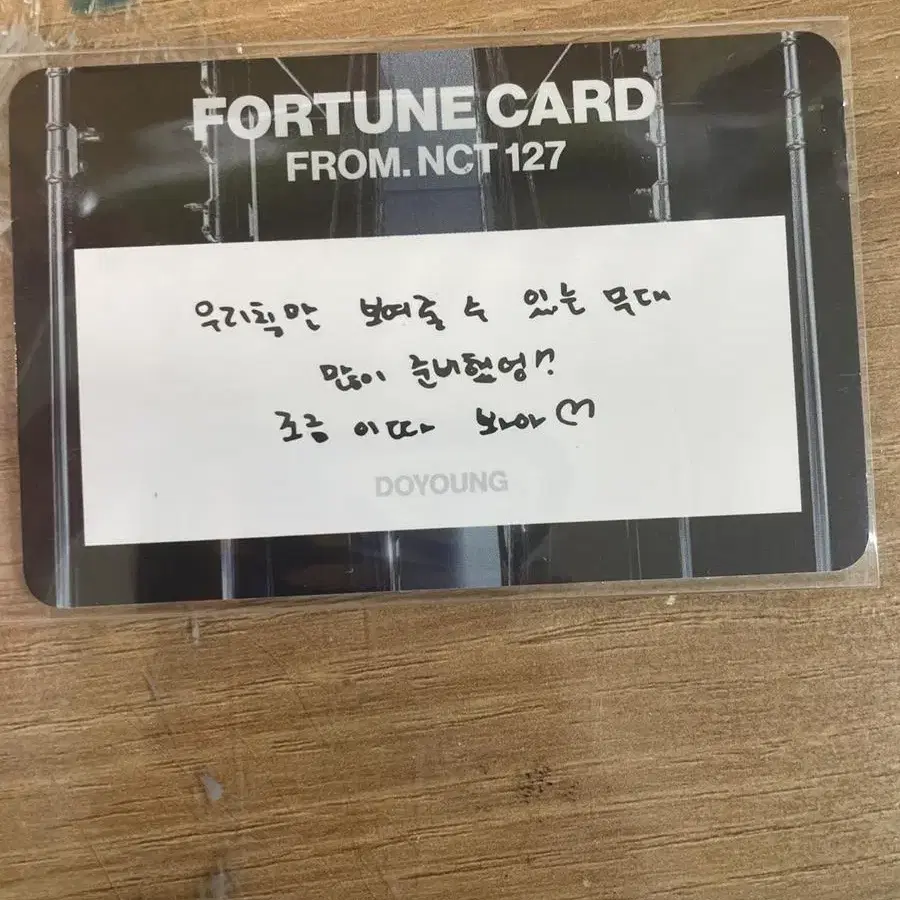 FORTUNE CARD
FROM. NCT 127
우리칰만 보여줄 수 있는 무대
많이 준비했엉!?
조금 이따 보아아♡
DOYOUNG